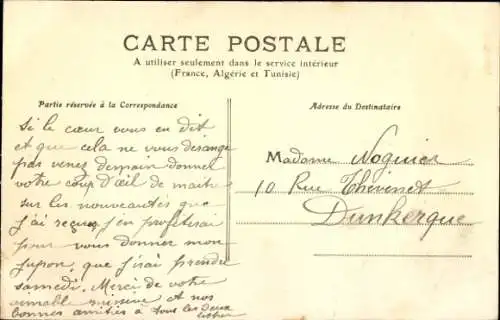 CARTE POSTALE
A utiliser seulement dans le service intérieur
(France, Algérie et Tunisie)
Partie réservée à la Correspondance
Adresse du Destinataire
Si le cœur vous en dit
et que cela ne vous dérange
pas venez demain donner
votre coup d'œil de maître
sur les nouveautés que
j'ai reçues, j'en profiterai
pour vous donner mon
jupon, que j'irai prendre
samedi. Merci de votre
aimable missive et nos
bonnes amitiés à tous les deux
Madame Noguier
10 Rue Thévenet
Dunkerque